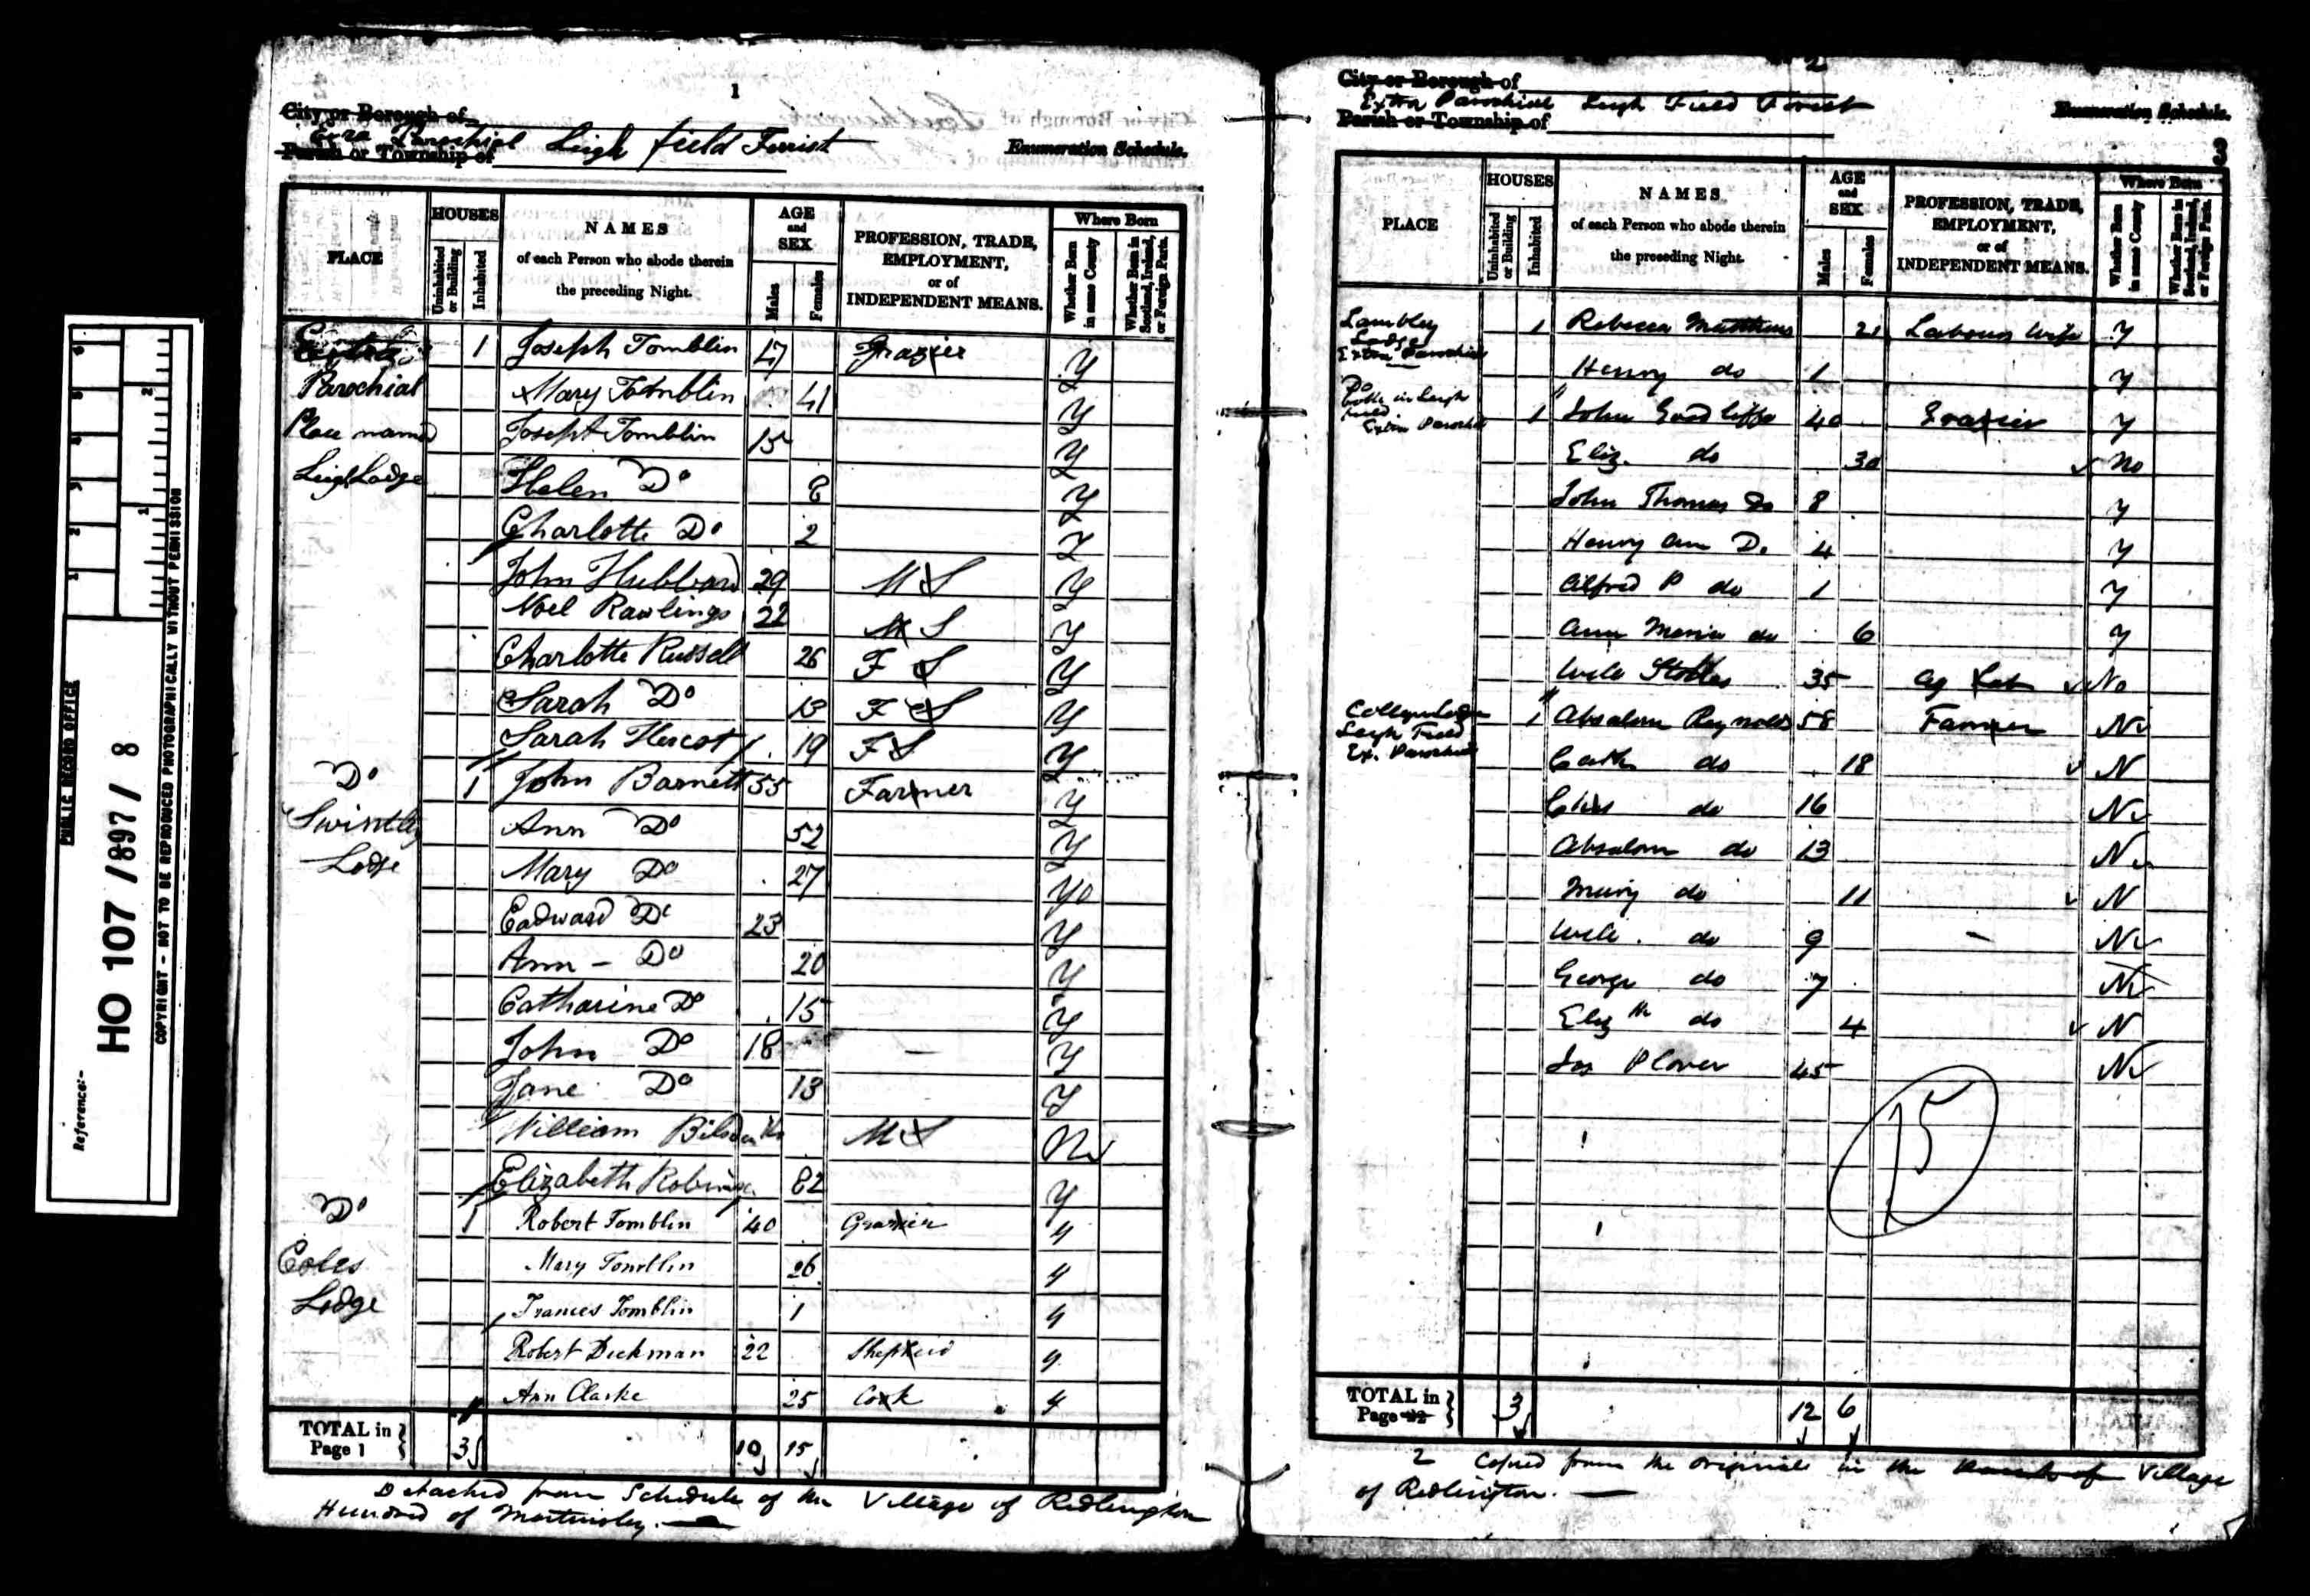 PUBLIC RECORD OFFICE
Reference:-
HO 107 / 897 / 8
COPYRIGHT - NOT TO BE REPRODUCED PHOTOGRAPHICALLY WITHOUT PERMISSION
1
City or Borough of
Parochial Leigh field Forrist
Parish or Township of
Enumeration Schedule.
PLACE
HOUSES
Uninhabited or Building
Inhabited
NAMES
of each Person who abode therein
the preceding Night.
AGE and SEX
Males
Females
PROFESSION, TRADE, EMPLOYMENT, or of INDEPENDENT MEANS.
Where Born
Whether Born in same County
Whether Born in Scotland, Ireland, or Foreign Parts.
Extra 1 Joseph Tomblin 47 Grazier Y
Parochial Mary Tomblin 41 Y
Place named Joseph Tomblin 15 Y
Leigh Lodge Helen Do 8 Y
Charlotte Do 2 Y
John Hubbard 29 M S Y
Noel Rawlings 22 M S Y
Charlotte Russell 26 F S Y
Sarah Do 13 F S Y
Sarah Hescot 19 F S Y
Do 1 John Barnett 55 Farmer Y
Swintley Ann Do 52 Y
Lodge Mary Do 27 Yo
Eadward Do 23 Y
Ann - Do 20 Y
Catharine Do 15 Y
John Do 18 - Y
Jane Do 13 Y
William M S No
Elizabeth 82 Y
Do 1 Robert Tomblin 40 Grazier y
Coles Mary Tomblin 26 y
Lodge Frances Tomblin 1 y
Robert Dickman 22 Shepherd y
Ann Clarke 25 Cook y
TOTAL in Page 1 3 10 15
Detached from Schedule of the Village of Ridlington
Hundred of Martinsley.
2
City or Borough of
Extra Parochial Leigh Field Forest
Parish or Township of
Enumeration Schedule.
3
PLACE
HOUSES
Uninhabited or Building
Inhabited
NAMES
of each Person who abode therein
the preceding Night.
AGE and SEX
Males
Females
PROFESSION, TRADE, EMPLOYMENT, or of INDEPENDENT MEANS.
Where Born
Whether Born in same County
Whether Born in Scotland, Ireland, or Foreign Parts.
Lambley 1 Rebecca Matthews 21 Labours Wife y
Lodge
Extra Parochial
Henry do 1 y
Do
in Leigh
Field 1 John Goodliffe 40 Grazier y
Extra Parochial
Eliz. do 30 No
John Thomas Do 8 y
Henry Do 4 y
Alfred P do 1 y
Ann Maria do 6 y
Will 35 Ag Lab No
1 Absalom Reynolds 58 Farmer N
Leigh Field
Ex. Parochial
Cath do 18 N
Chas do 16 N
Absalom do 13 N
Mary do 11 N
Will. do 9 - N
George do 7 N
Elizth do 4 N
Jos Plover 45 N
15
TOTAL in Page 3 12 6
2 Copied from the originals in the Village
of Ridlington.